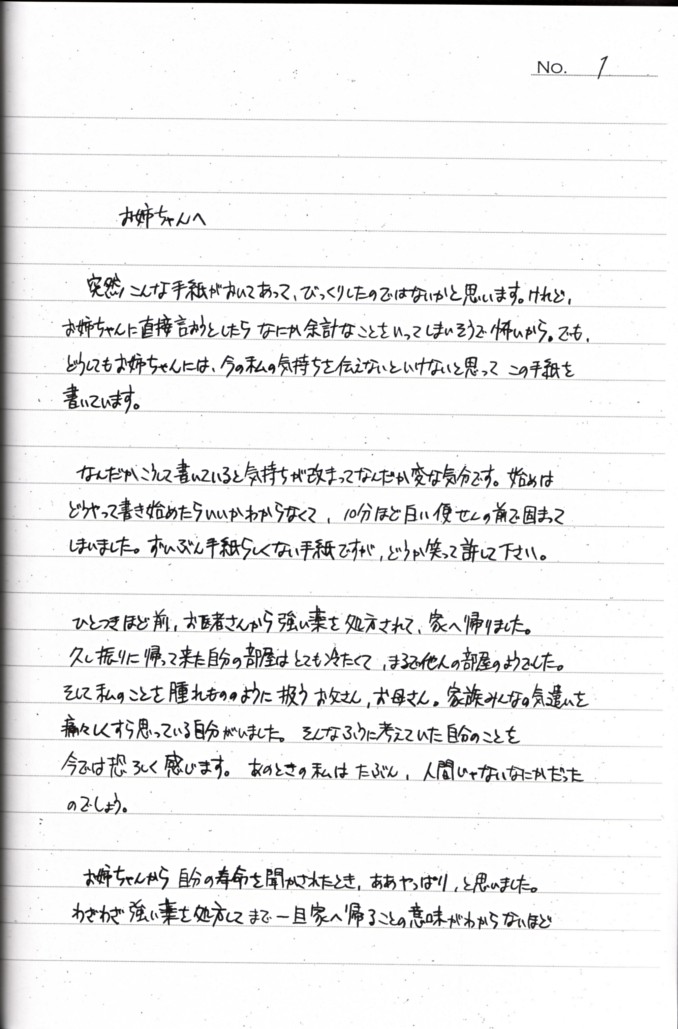 No. 1
お姉ちゃんへ
突然こんな手紙がおいてあって、びっくりしたのではないかと思います。けれど、
お姉ちゃんに直接言おうとしたらなにか余計なことをいってしまいそうで怖いから。でも、
どうしてもお姉ちゃんには、今の私の気持ちを伝えないといけないと思って この手紙を
書いています。
なんだかこうして書いていると気持ちが改まってなんだか変な気分です。始めは
どうやって書き始めたらいいかわからなくて、10分ほど白い便せんの前で固まって
しまいました。ずいぶん手紙らしくない手紙ですが、どうか笑って許して下さい。
ひとつきほど前、お医者さんから強い薬を処方されて、家へ帰りました。
久し振りに帰って来た自分の部屋はとても冷たくて、まるで他人の部屋のようでした。
そして私のことを腫れもののように扱うお父さん、お母さん。家族みんなの気遣いを
痛々しくすら思っている自分がいました。そんなふうに考えていた自分のことを
今では恐ろしく感じます。あのときの私はたぶん、人間じゃないなにかだった
のでしょう。
お姉ちゃんから自分の寿命を聞かされたとき、ああやっぱり、と思いました。
わざわざ強い薬を処方してまで一旦家へ帰ることの意味がわからないほど